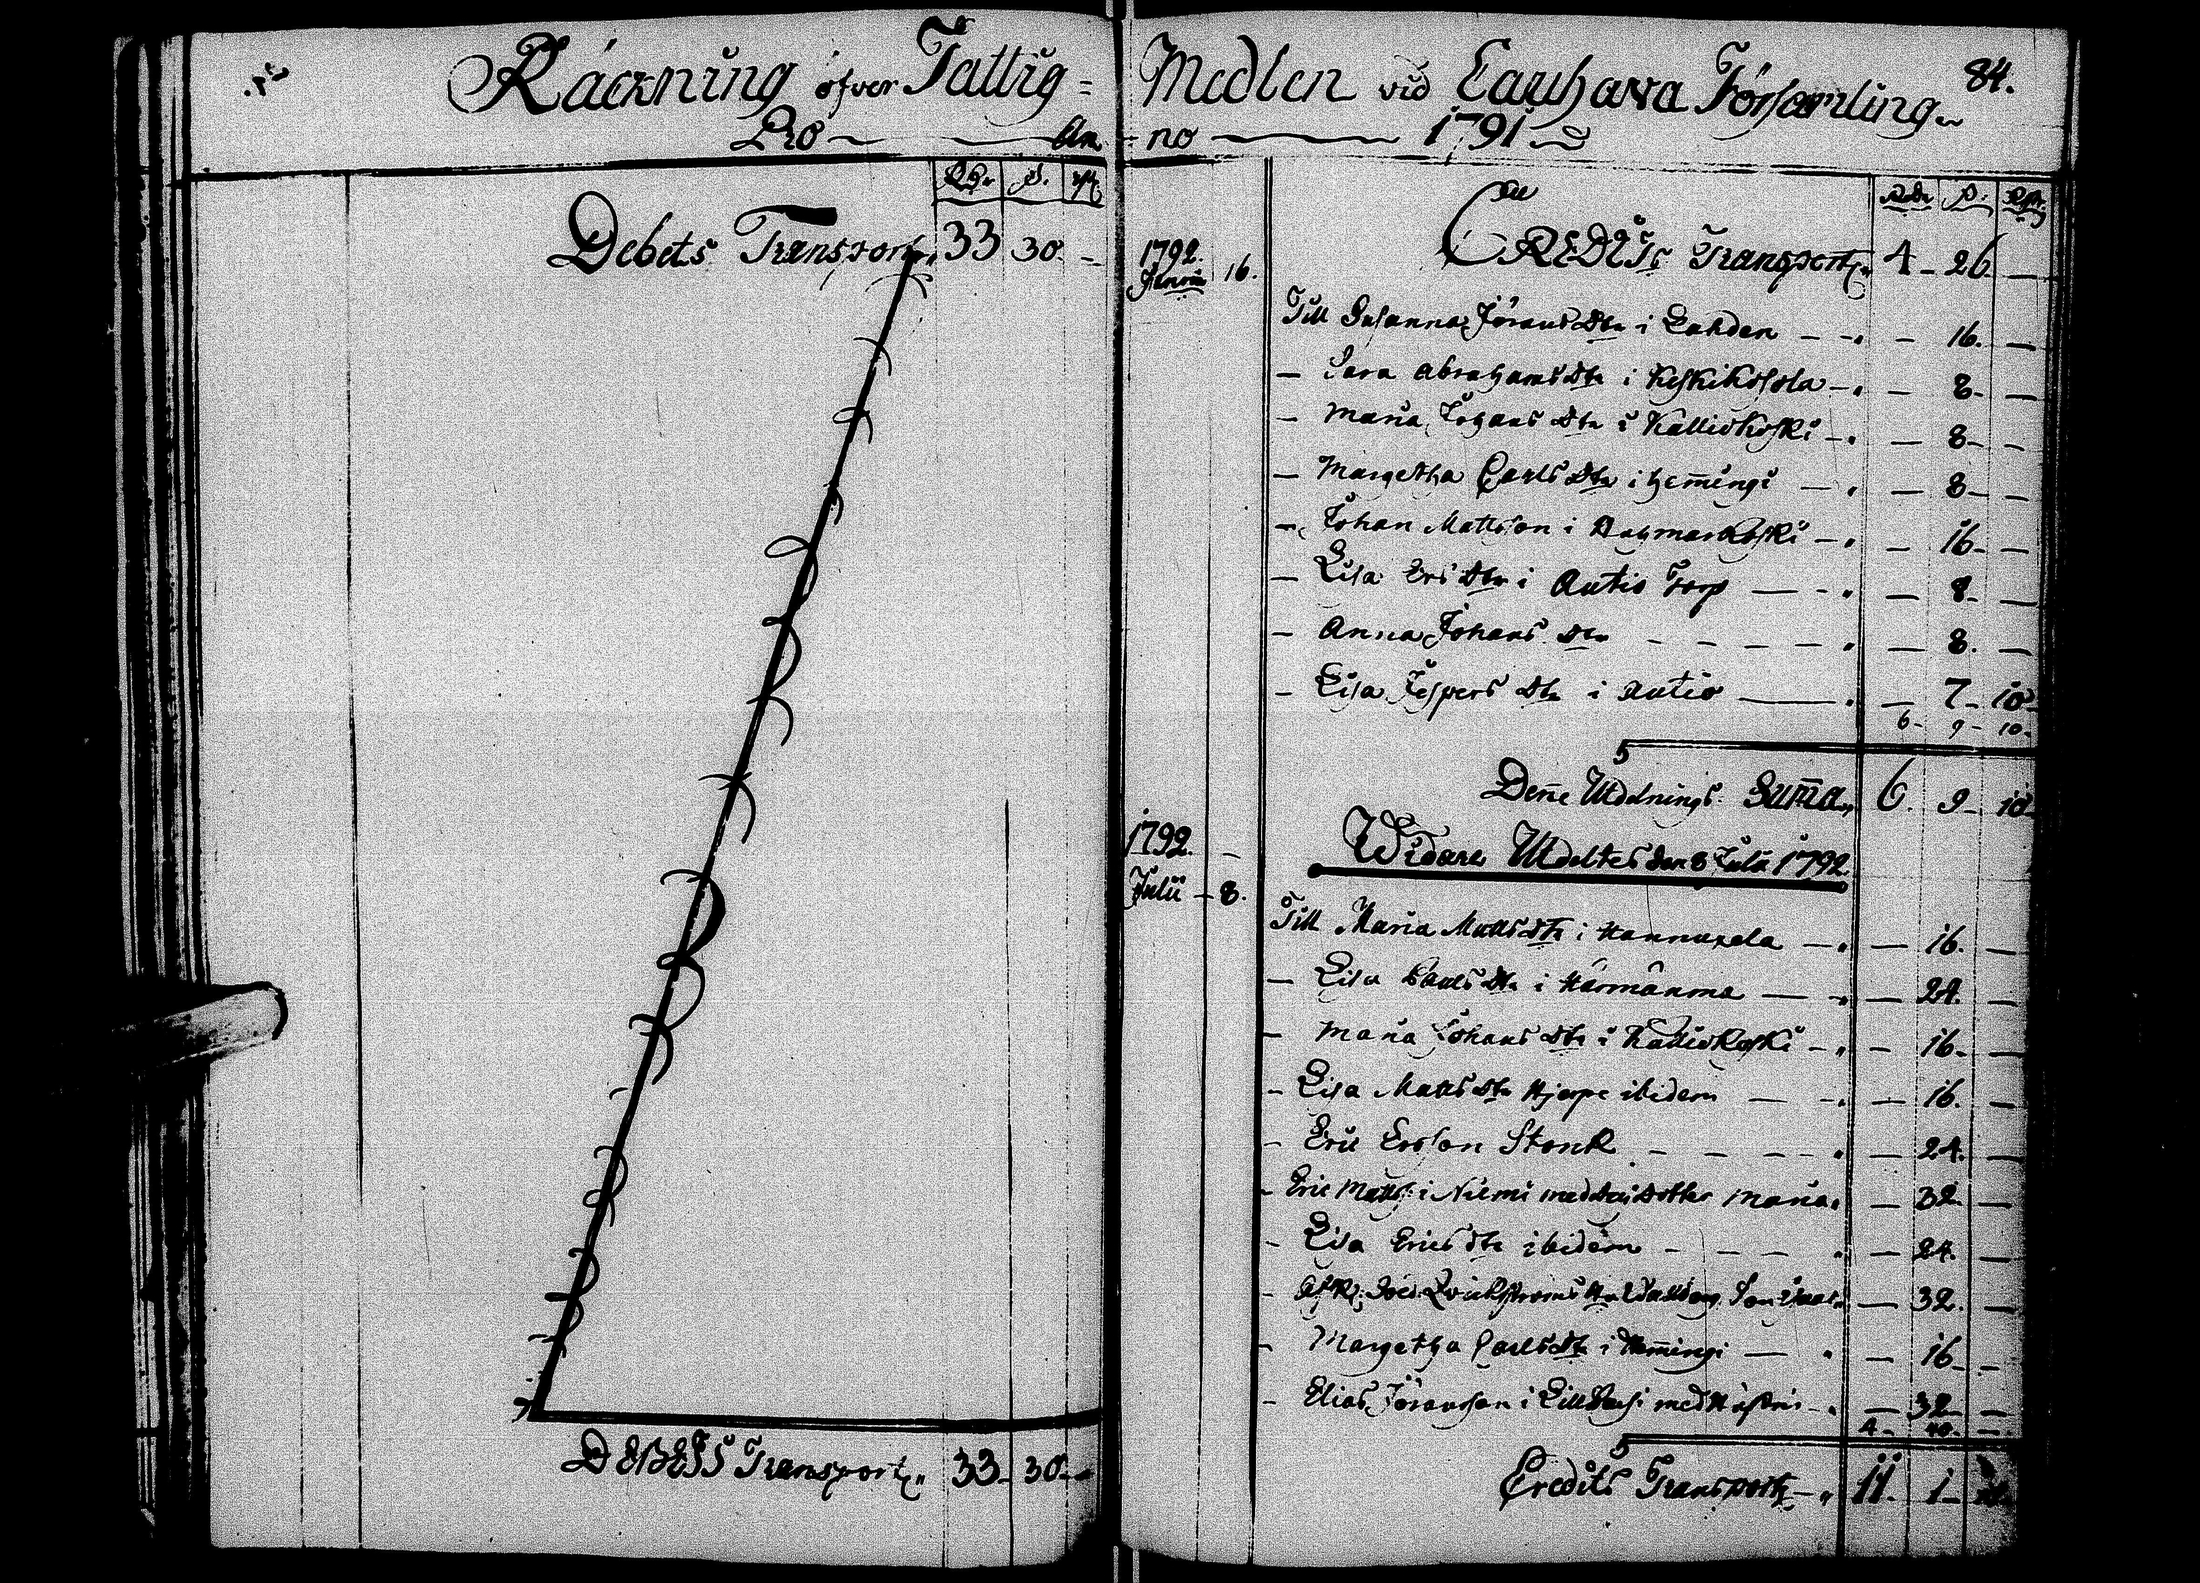 Räckning öfver Fattig=
Pro An
Rdr s. rst.
Debets Transport 33 30. -
DEBETS Transport 33. 30. -
84.
Medlen vid Lauhava Församling
no 1791
Rdr s. Rst.
1792. CREDITS Transport 4 - 26 -
16.
Till Susanna Jörans Dtr i Lahden - - 16. -
- Sara Abrahams Dtr i Keskikosola - - 8 - -
- Maria Johans Dtr i Kalliokoski - - 8 - -
- Margetha Carls Dtr i Hem̄ingi - - 8 - -
- Johan Mattsson i - - 16 - -
- Lisa Ers Dtr i Autio Torp - - 8 - -
- Anna Johans Dtr - - - - - 8. -
- Lisa Jespers Dtr i Autio - - 7 - 10
6 - 9 - 10 -
Den̄e Utdelnings Sum̄a 6. 9 - 10
1792. - Widare Utdeltes den 8 Julii 1792
Julii - 8.
Till Maria Matts Dtr i Hannuxela - - 16. -
- Lisa Dtr i Härmänmä - - 24. -
- Maria Johans Dtr i Kalliokoski - - 16 - -
- Lisa Matts Dtr Hjerpe ibidem - - 16. -
- Eric Ersson Stonk - - - - 24. -
- Eric Matts: i Niemi med Dotter Maria - 32 -
- Lisa Erics dtr ibidem - - - - 24. -
- 32. -
- Margetha Carls dtr i Hem̄ingi - - 16 - -
- Elias Jöransson i med Hustru - - 32 -
4 - 40 -
Credits Transport - 11. 1 -